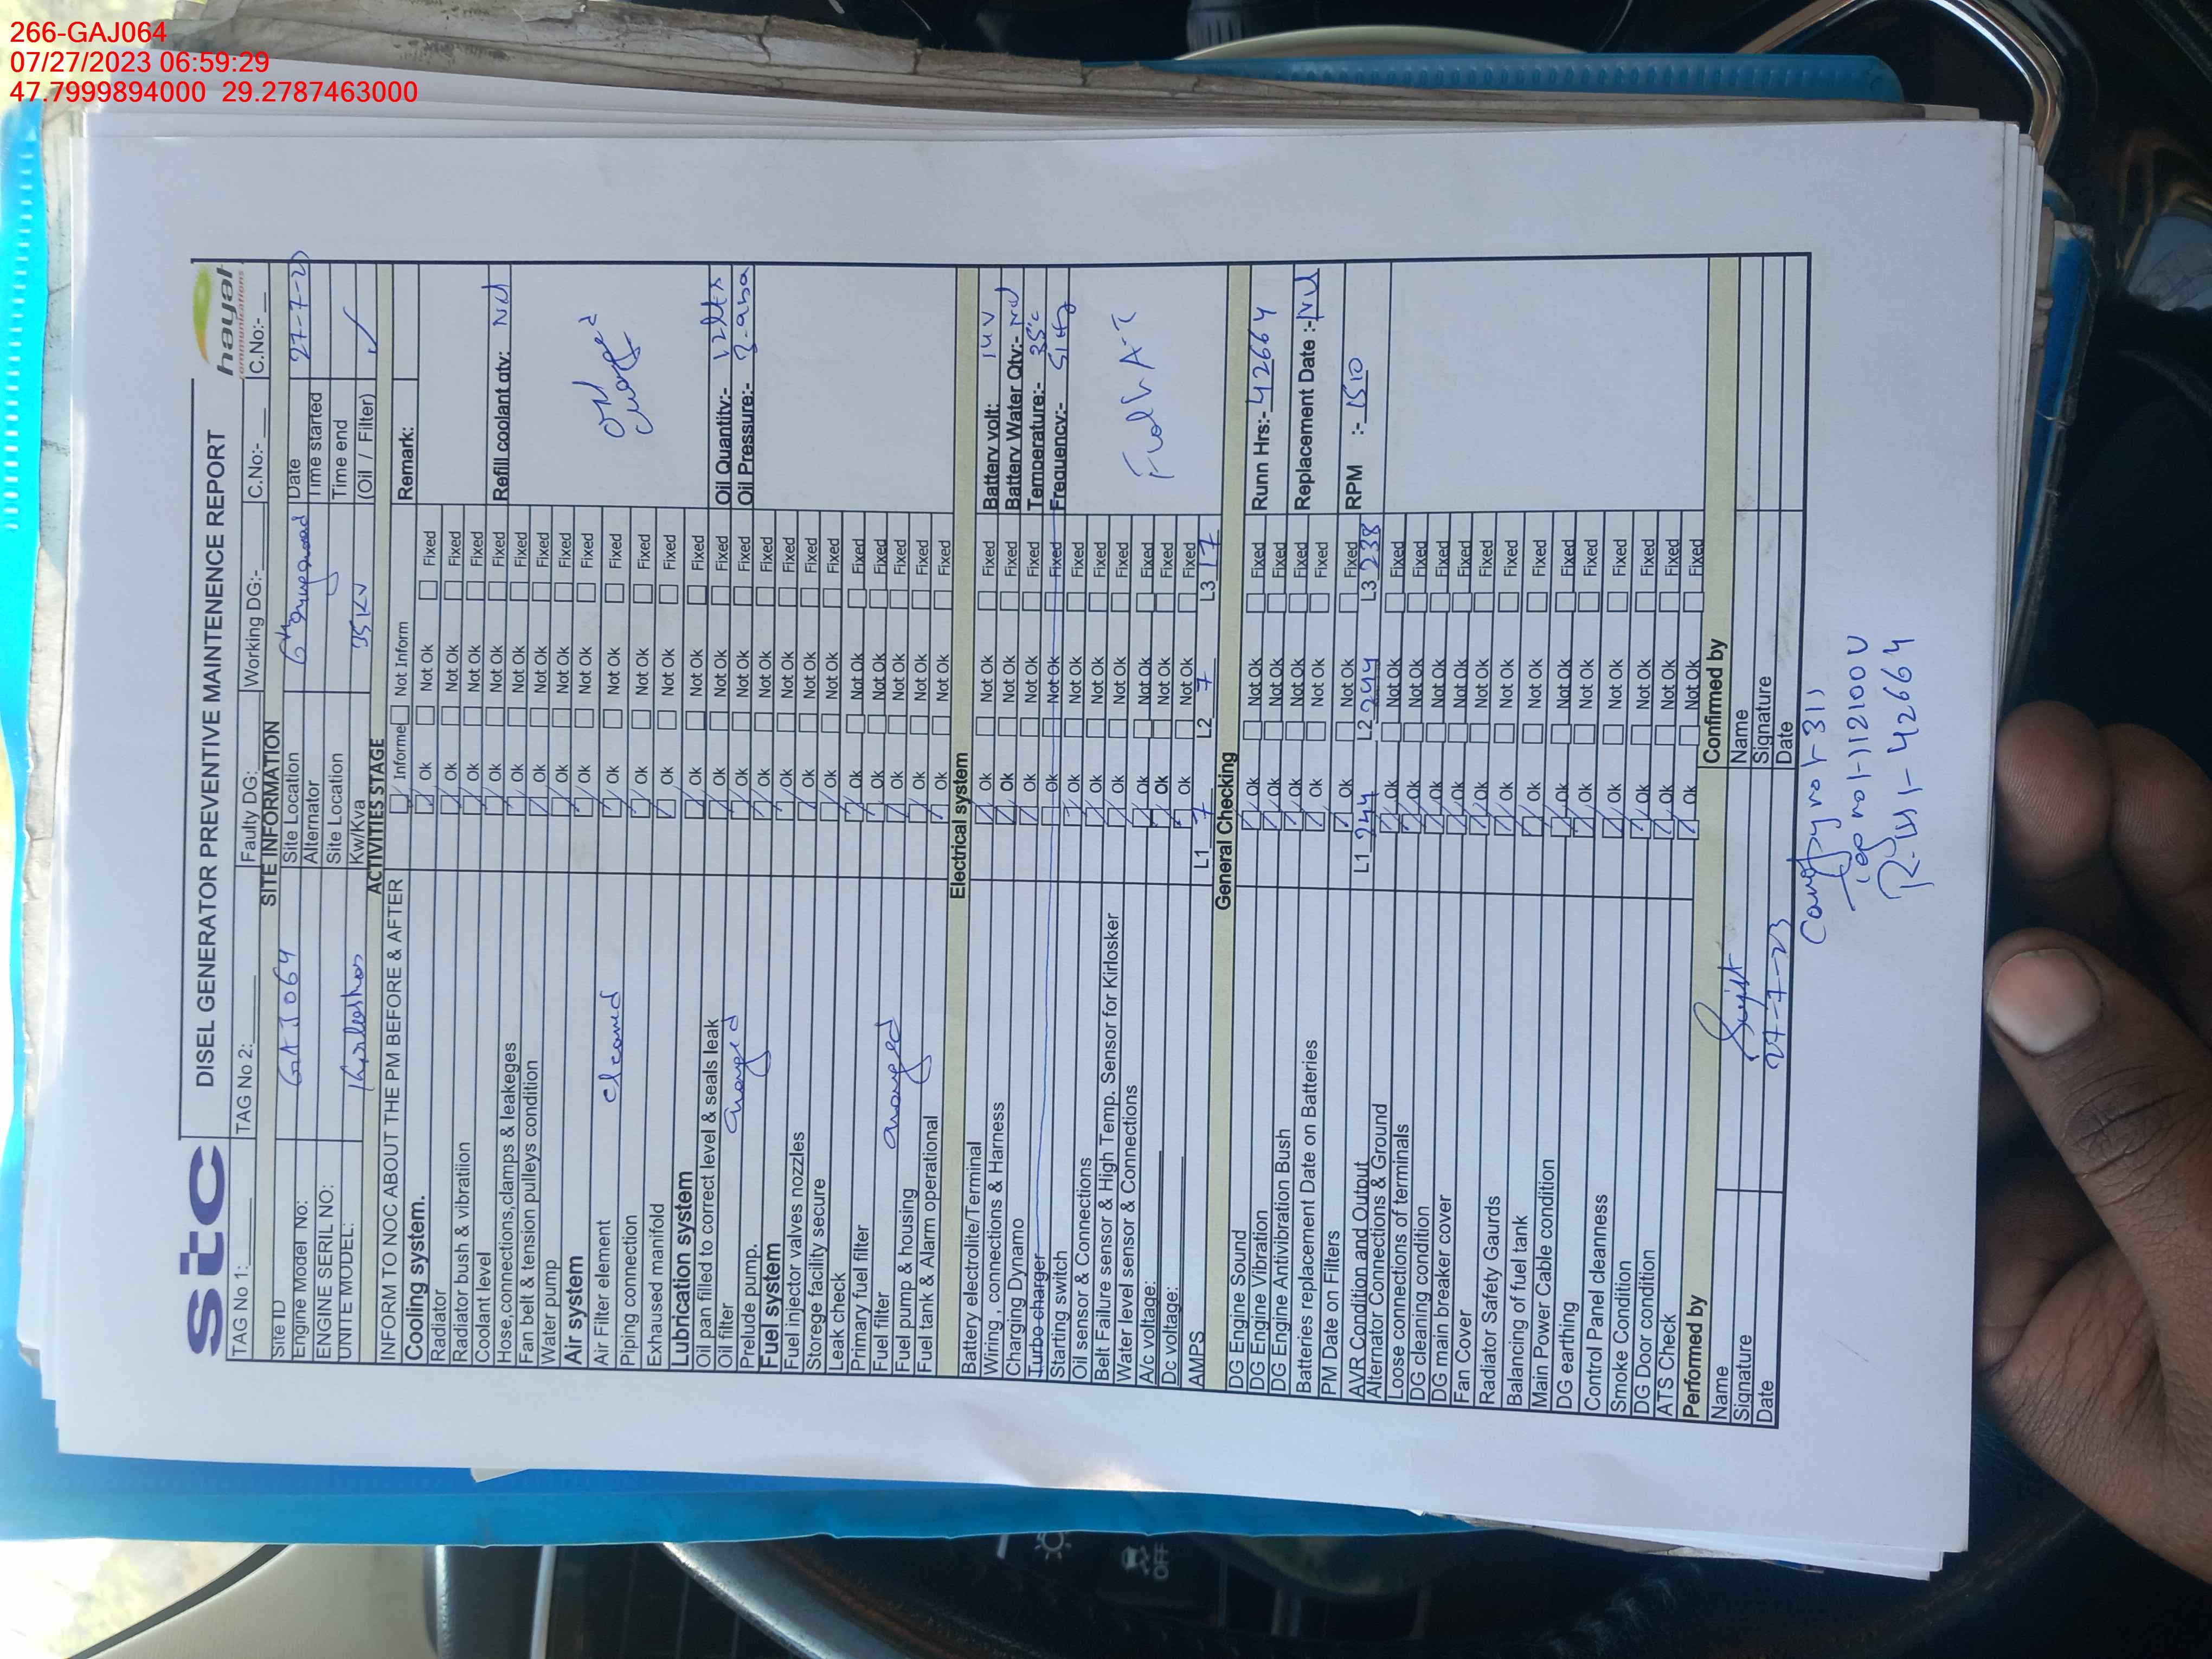 266-GAJ064
07/27/2023 06:59:29
47.7999894000 29.2787463000
stc
DISEL GENERATOR PREVENTIVE MAINTENENCE REPORT
hayat
communications
TAG No 1:____ TAG No 2:____ Faulty DG: Working DG:-____ C.No:- __ C.No:- __
SITE INFORMATION
Site ID GAJ064 Site Location 6th Date 27-7-23
Engine Model No: Alternator Time started
ENGINE SERIL NO: Site Location Time end
UNITE MODEL: Kw/Kva 35KV (Oil / Filter) ✓
ACTIVITIES STAGE
INFORM TO NOC ABOUT THE PM BEFORE & AFTER Informe Not Inform Remark:
Cooling system. Ok Not Ok Fixed
Radiator Ok Not Ok Fixed
Radiator bush & vibratiion Ok Not Ok Fixed
Coolant level Ok Not Ok Fixed Refill coolant qty: Nil
Hose,connections,clamps & leakeges Ok Not Ok Fixed
Fan belt & tension pulleys condition Ok Not Ok Fixed
Water pump Ok Not Ok Fixed
Air system Ok Not Ok Fixed
Air Filter element cleaned Ok Not Ok Fixed Oil changed
Piping connection Ok Not Ok Fixed
Exhaused manifold Ok Not Ok Fixed
Lubrication system
Oil pan filled to correct level & seals leak Ok Not Ok Fixed
Oil filter changed Ok Not Ok Fixed Oil Quantity:- 12 ltrs
Prelude pump. Ok Not Ok Fixed Oil Pressure:-
Fuel system Ok Not Ok Fixed
Fuel injector valves nozzles Ok Not Ok Fixed
Storege facility secure Ok Not Ok Fixed
Leak check Ok Not Ok Fixed
Primary fuel filter Ok Not Ok Fixed
Fuel filter changed Ok Not Ok Fixed
Fuel pump & housing Ok Not Ok Fixed
Fuel tank & Alarm operational Ok Not Ok Fixed
Electrical system
Battery electrolite/Terminal Ok Not Ok Fixed Battery volt: 14V
Wiring , connections & Harness Ok Not Ok Fixed Battery Water Qty:- Nil
Charging Dynamo Ok Not Ok Fixed Temperature:- 35°c
Turbo charger Ok Not Ok Fixed Frequency:- 51Hz
Starting switch Ok Not Ok Fixed
Oil sensor & Connections Ok Not Ok Fixed
Belt Failure sensor & High Temp. Sensor for Kirlosker Ok Not Ok Fixed
Water level sensor & Connections Ok Not Ok Fixed
A/c voltage: Ok Not Ok Fixed
Dc voltage: Ok Not Ok Fixed
AMPS L1 7 L2 7 L3 17
General Checking
DG Engine Sound Ok Not Ok Fixed Runn Hrs:- 42664
DG Engine Vibration Ok Not Ok Fixed
DG Engine Antivibration Bush Ok Not Ok Fixed Replacement Date :- Nil
Batteries replacement Date on Batteries Ok Not Ok Fixed
PM Date on Filters Ok Not Ok Fixed RPM :- 1510
AVR Condition and Output L1 244 L2 244 L3 238
Alternator Connections & Ground Ok Not Ok Fixed
Loose connections of terminals Ok Not Ok Fixed
DG cleaning condition Ok Not Ok Fixed
DG main breaker cover Ok Not Ok Fixed
Fan Cover Ok Not Ok Fixed
Radiator Safety Gaurds Ok Not Ok Fixed
Balancing of fuel tank Ok Not Ok Fixed
Main Power Cable condition Ok Not Ok Fixed
DG earthing Ok Not Ok Fixed
Control Panel cleanness Ok Not Ok Fixed
Smoke Condition Ok Not Ok Fixed
DG Door condition Ok Not Ok Fixed
ATS Check Ok Not Ok Fixed
Performed by Confirmed by
Name Name
Signature Signature
Date 27-7-23 Date
R.H1-42664
OFF